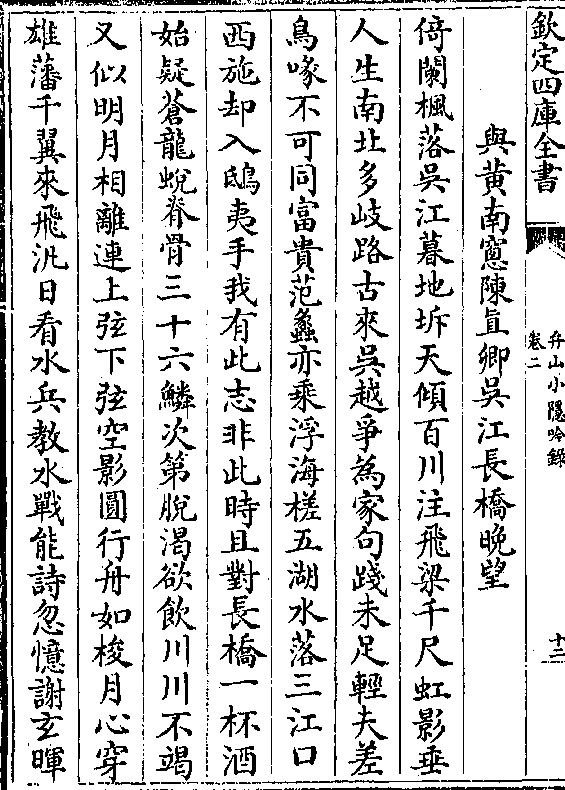 欽定四庫全書
弁山小隱吟錄
卷二
十二
與黄南窻陳直卿吳江長橋晚望
倚闌楓落吳江暮地坼天傾百川注飛梁千尺虹影垂
人生南北多岐路古來吳越爭為家句踐未足輕夫差
鳥喙不可同富貴范蠡亦乘浮海槎五湖水落三江口
西施却入鴟夷手我有此志非此時且對長橋一杯酒
始疑蒼龍蛻脊骨三十六鱗次第脫渴欲飲川川不竭
又似明月相離連上弦下弦空影圓行舟如梭月心穿
雄藩千翼來飛汎日看水兵教水戰能詩忽憶謝玄暉